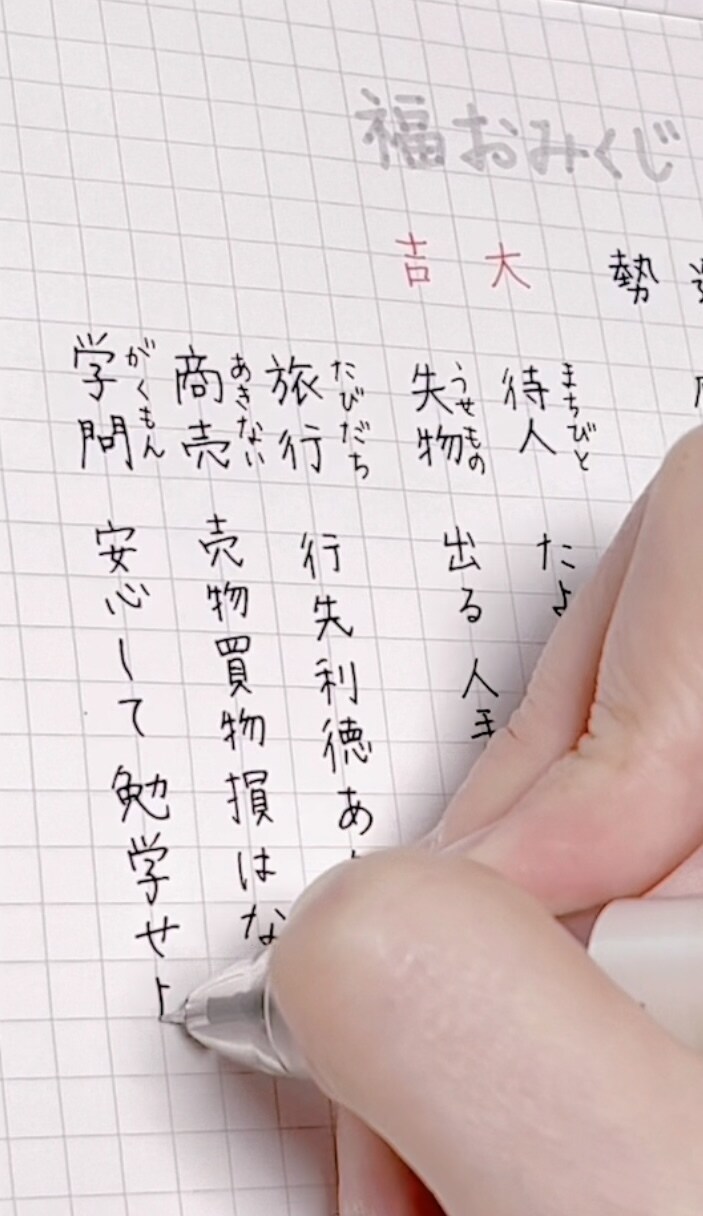 福おみくじ
勢 大吉
待人 まちびと たよ
失物 うせもの 出る 人手
旅行 たびだち 行先利徳あ
商売 あきない 売物買物損はな
学問 がくもん 安心して勉学せよ